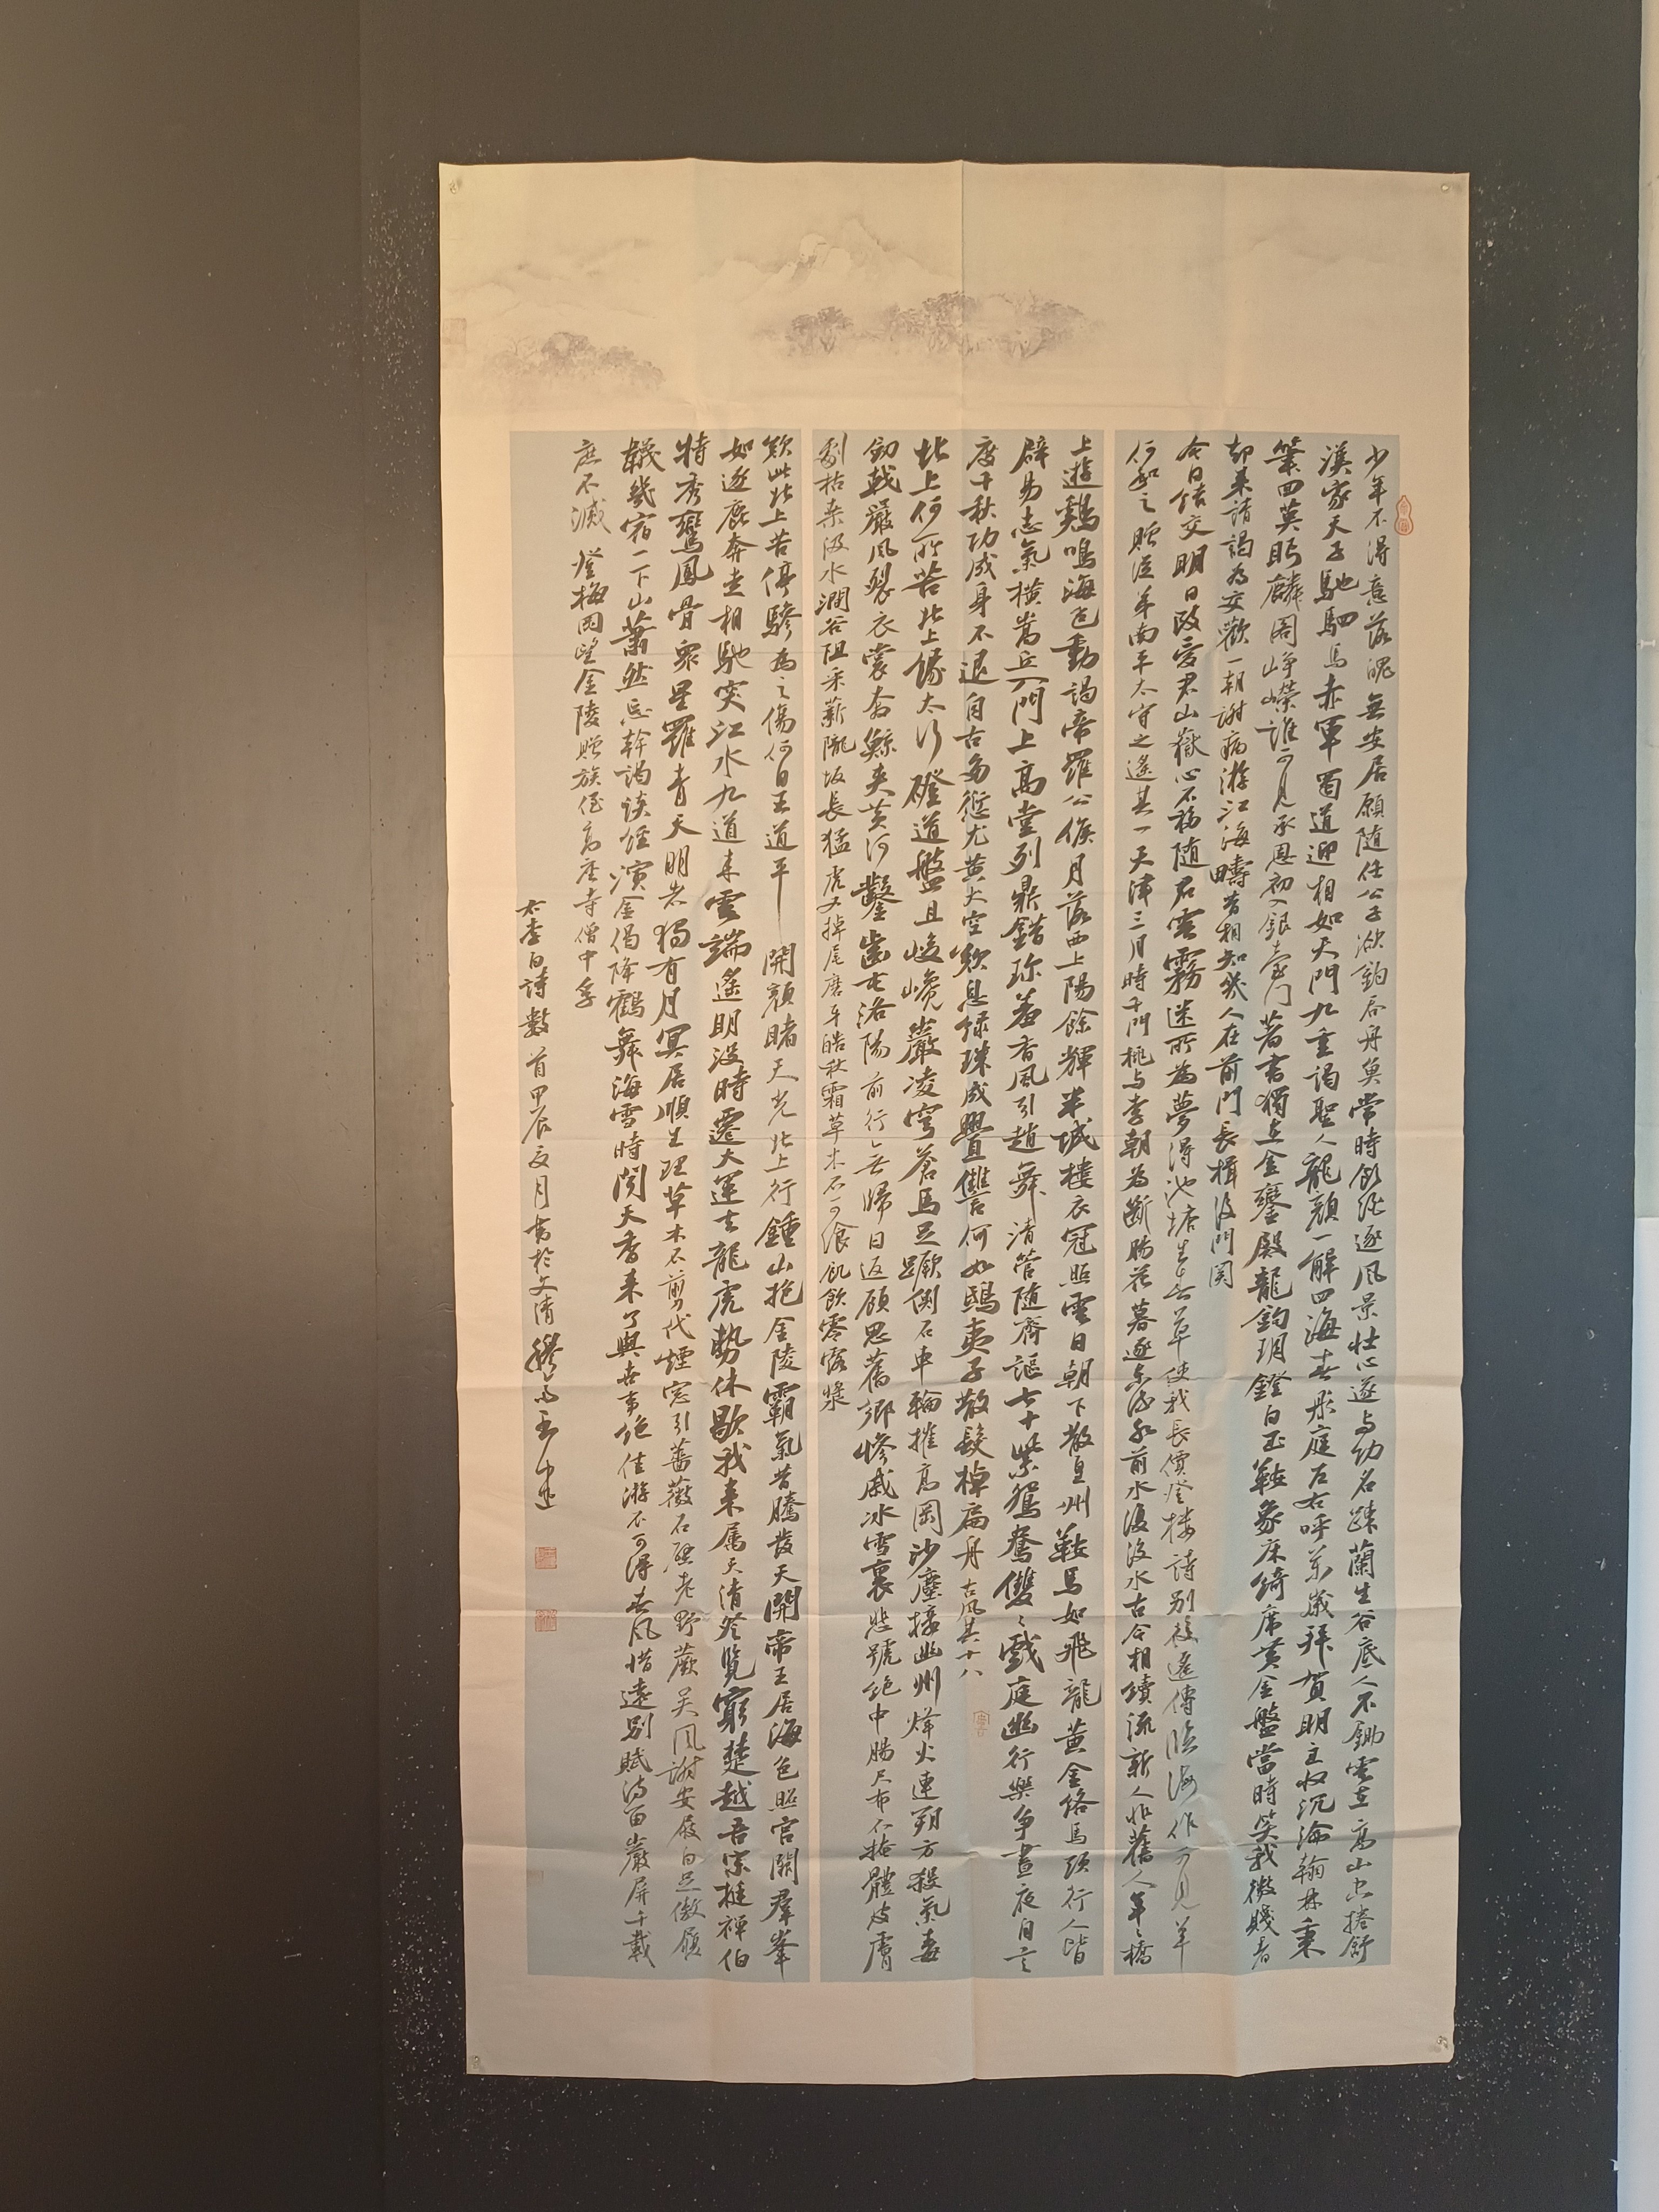 少年不得意落魄無安居願隨任公子欲釣吞舟魚常時飲酒逐風景壯心遂與功名疎蘭生谷底人不鋤雲在高山空捲舒
漢家天子馳駟馬赤軍蜀道迎相如天門九重謁聖人龍顏一解四海春彤庭左右呼萬歲拜賀明主收沉淪翰林秉
筆回英眄麟閣崢嶸誰可見承恩初入銀臺門著書獨在金鑾殿龍鉤玥鐙白玉鞍象床綺席黃金盤當時笑我微賤者
却來請謁為交歡一朝謝病游江海疇昔相知幾人在前門長揖後門關
今日結交明日改愛君山嶽心不移随君雲霧迷所為夢得池塘生春草使我長價登樓詩別後遙傳臨海作可見羊
何和之 贈從弟南平太守之遙其一 天津三月時千門桃與李朝為斷腸花暮逐東流水前水復後水古今相續流新人非舊人年々橋
上遊鷄鳴海色動謁帝羅公侯月落西上陽餘輝半城樓衣冠照雲日朝下散皇州鞍馬如飛龍黃金絡馬頭行人皆
辟易志氣橫嵩丘入門上高堂列鼎錯珍羞香風引趙舞清管随齊謳七十紫鴛鴦雙々戲庭幽行樂争晝夜自言
度千秋功成身不退自古多愆尤黃犬空歎息緑珠成釁讎何如鴟夷子散髮棹扁舟 古風其十八
北上何所苦北上緣太行磴道盤且峻巉巖凌穹蒼馬足蹶側石車輪摧高岡沙塵接幽州烽火連朔方殺氣毒
劒戟嚴風裂衣裳奔鯨夾黃河鑿齒屯洛陽前行々無歸日返顧思舊鄉慘戚冰雪裏悲號絶中腸尺布不掩體皮膚
劇枯桑汲水澗谷阻采薪隴坂長猛虎又掉尾磨牙皓秋霜草木不可飡飢飲零露漿
歎此北上苦停驂為之傷何日王道平開顏睹天光 北上行 鍾山抱金陵霸氣昔騰發天開帝王居海色照宮闕群峯
如逐鹿奔走相馳突江水九道来雲端遙明没時遷大運去龍虎勢休歇我来属天清登覧窮楚越吾宗挺禅伯
特秀鸞鳳骨衆星羅青天明者獨有月冥居順生理草木不剪伐煙窓引薔薇石壁老野蕨吴風謝安屐白足傲履
韈幾宿一下山蕭然忘幹謁談經演金偈降鶴舞海雪時闻天香来了與世事絶佳游不可得春風惜遠别賦詩留巖屏千載
庶不滅 登梅岡望金陵贈族侄高座寺僧中孚
右李白詩數首甲辰夏月書於文清